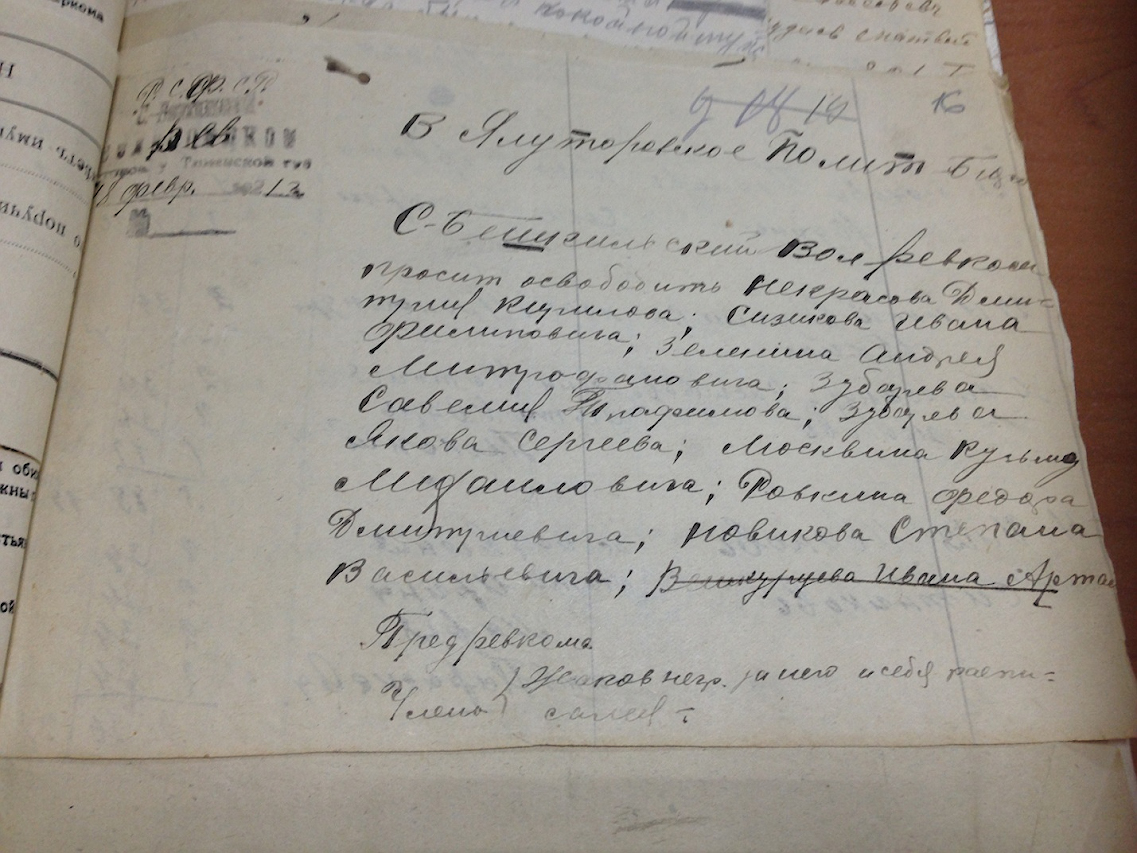 покойному
Р.С.Ф.С.Р.
Тюменской губ
18 февр. 1921 г
№
16
В Ялуторовское Полит Бюро
С-Бешкильский Вол ревком
просит освободить Некрасова Дми-
трия Кирилова; Сизикова Ивана
Филиповича; Зеленина Андрея
Митрофановича; Зубарева
Савелия Трафимова; Зубарева
Якова Сергеева; Москвина Кузьму
Михаиловича; Ровкина Федора
Дмитриевича; Новикова Степана
Васильевича; Ивана Арта
Предревкома
Члена негр. за него и себя распи-
сался